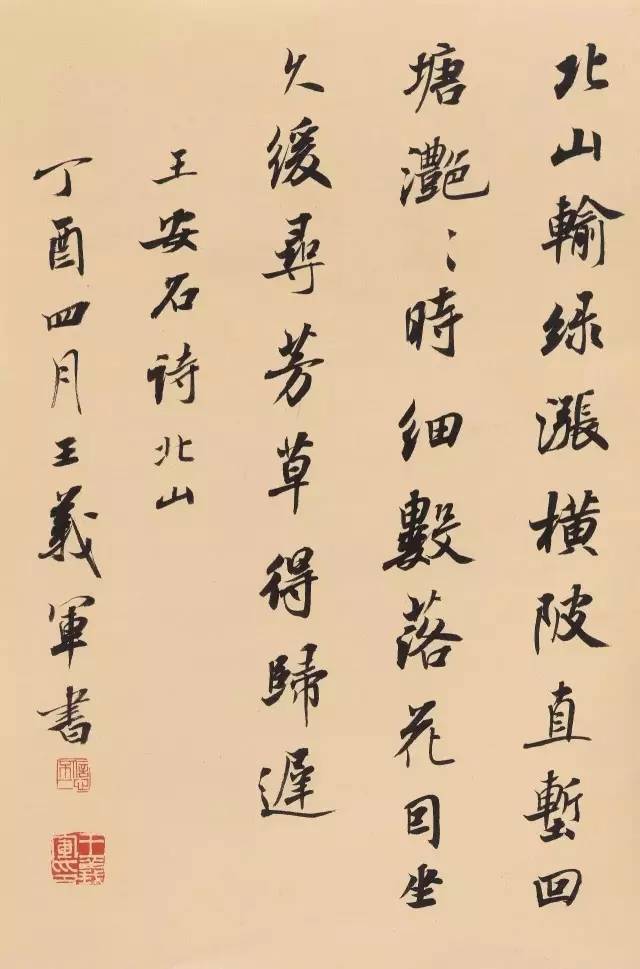 北山輸绿漲橫陂直塹回
塘灔〻時細數落花因坐
久緩尋芳草得歸遲
王安石诗北山
丁酉四月王義軍書
王義軍印